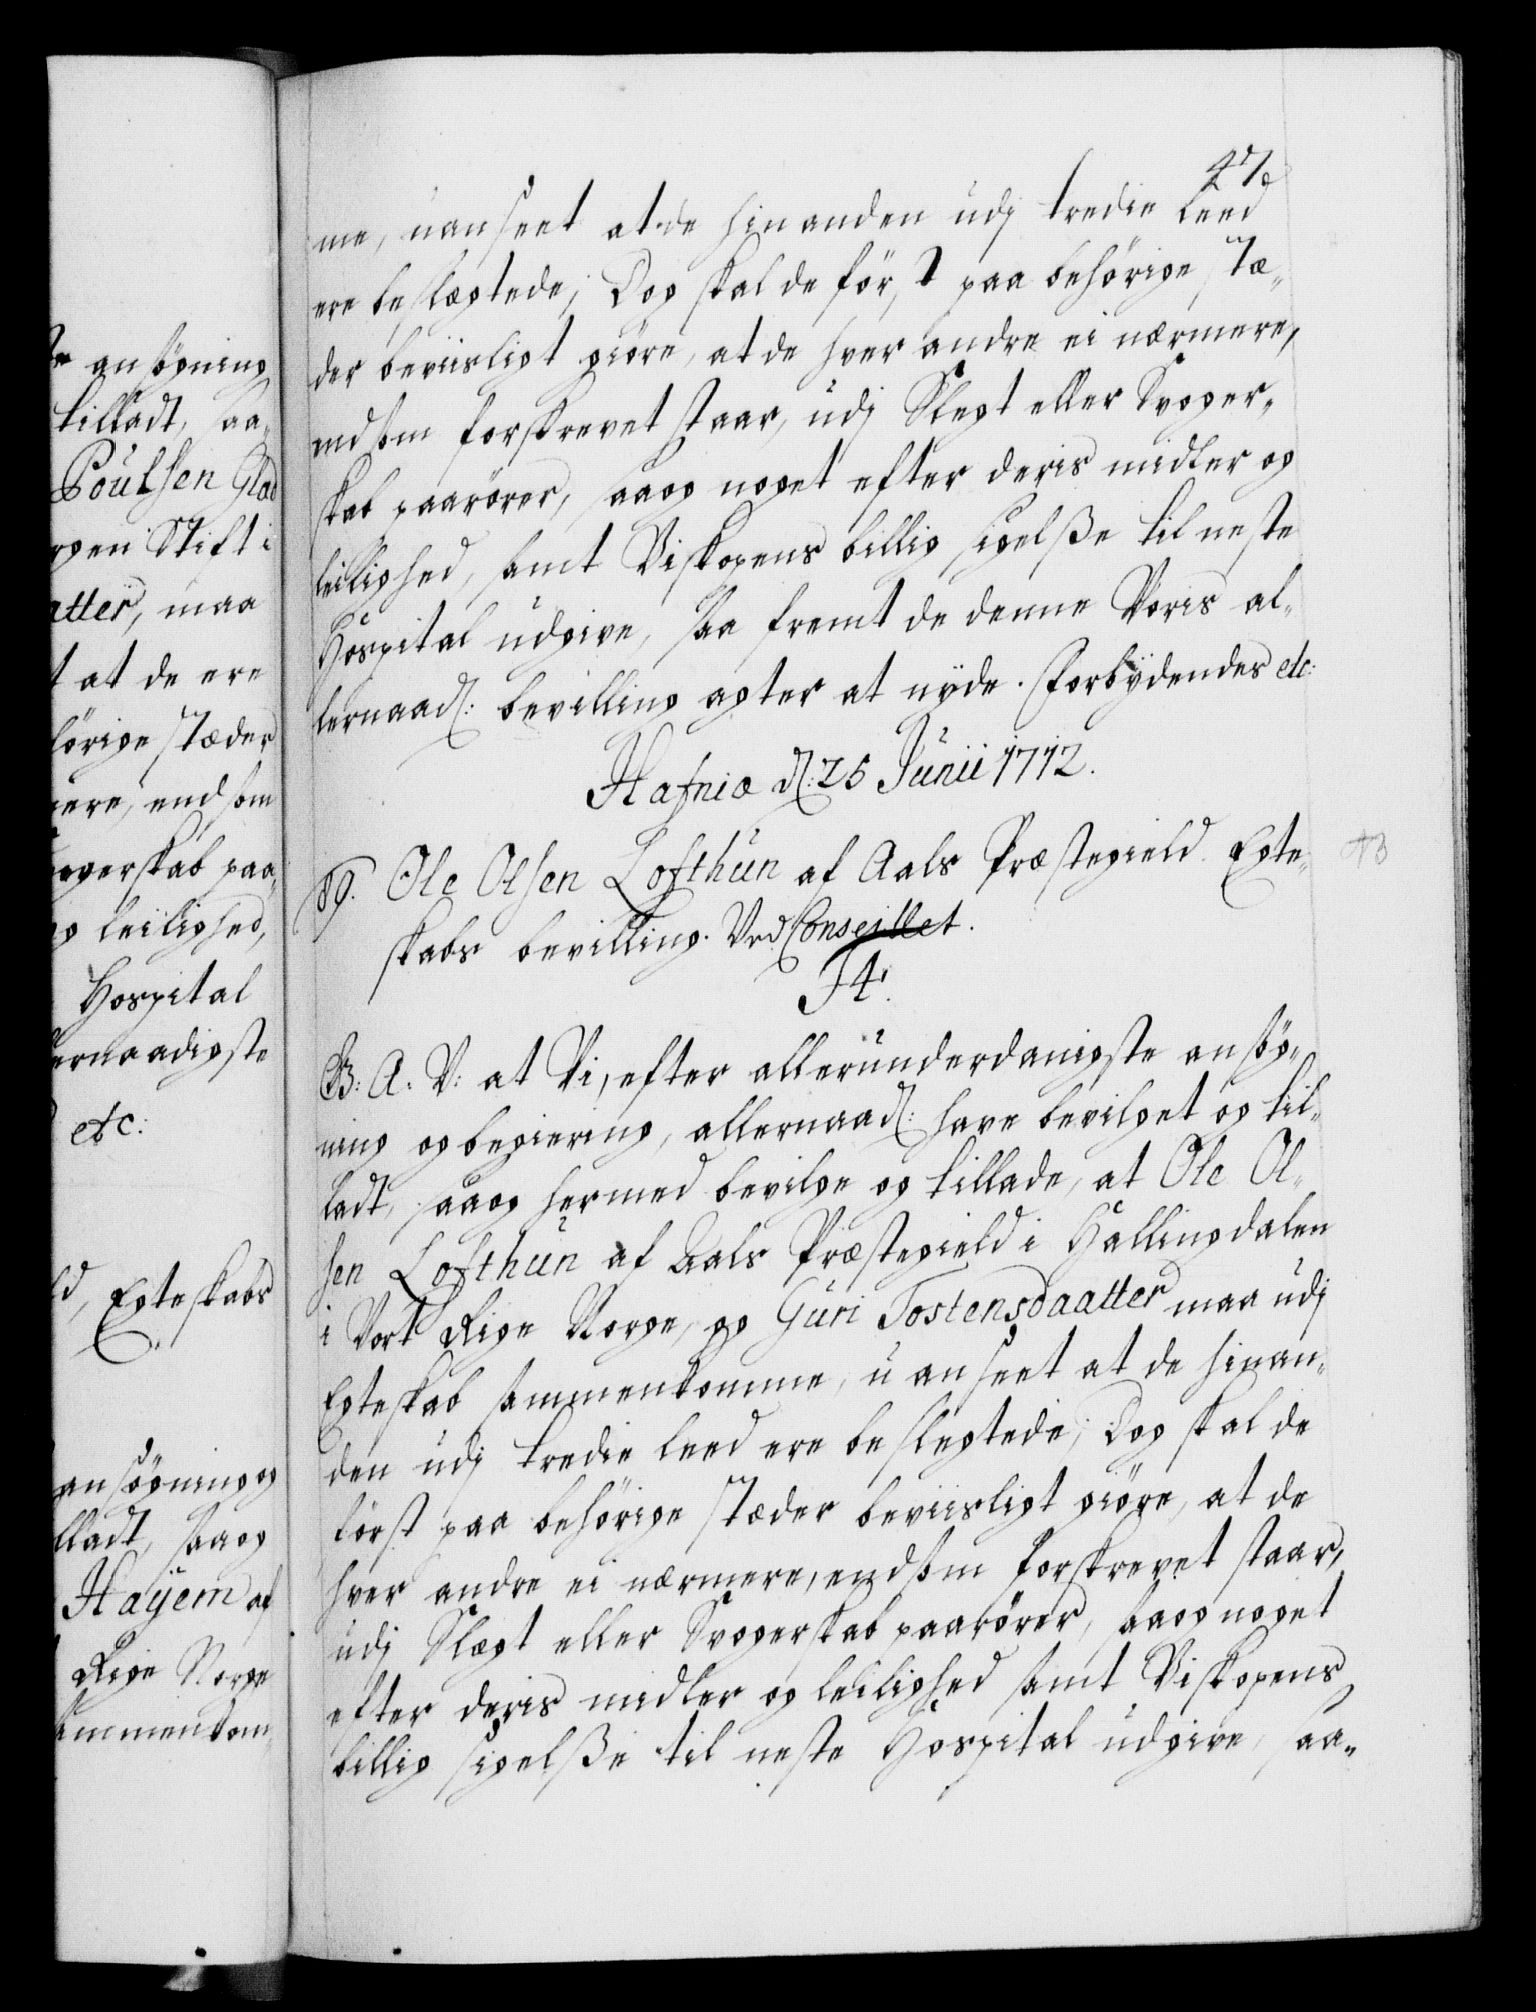 47
me, uanseet at de hinanden udj tredie Leed
ere beslægtede; Dog skal de först paa behörige Stæ-
der beviisligt giöre, at de hver andre ei nærmere,
end som forskrevet staar, udj Slegt eller Svoger-
skab paarörer, saa og noget efter deris midler og
leilighed, samt Biskopens billig sigelße til neste
Hospital udgive, saa fremt de denne Voris al-
lernaad: bevilling agter at nyde. Forbydendes etc:
Hafniæ d: 25 Junii 1712.
89. Ole Olsen Lofthun af Aals Præstegield Egte-
skabs bevilling. Ved Conseillet.
F4.
G: A: V: at Vi, efter allerunderdanigste ansög-
ning og begiering, allernaad: have bevilget og til-
ladt, saa og hermed bevilge og tillade, at Ole Ol-
sen Lofthun af Aals Præstegield i Hallingdalen
i Vort Rige Norge, og Guri Tostensdaatter maa udj
Egteskab sammenkomme, uanseet at de hinan-
den udj tredie leed ere beslegtede; Dog skal de
först paa behörige Stæder beviisligt giöre, at de
hver andre ei nærmere, end som forskrevet staar,
udj Slægt eller Svogerskab paarörer, saa og noget
efter deris midler og leilighed samt Biskopens
billig sigelße til neste Hospital udgive, saa-
ansögning
tilladt, saa-
Poulsen Glad
rgen Stift i
atter, maa
t at de ere
hörige Stæder
mere, end som
vogerskab paa-
og leilighed,
Hospital
lernaadigste
etc:
ld, Egteskabs
ansögning og
lladt, saa og
Hayem af
Rige Norge
ammenkom-